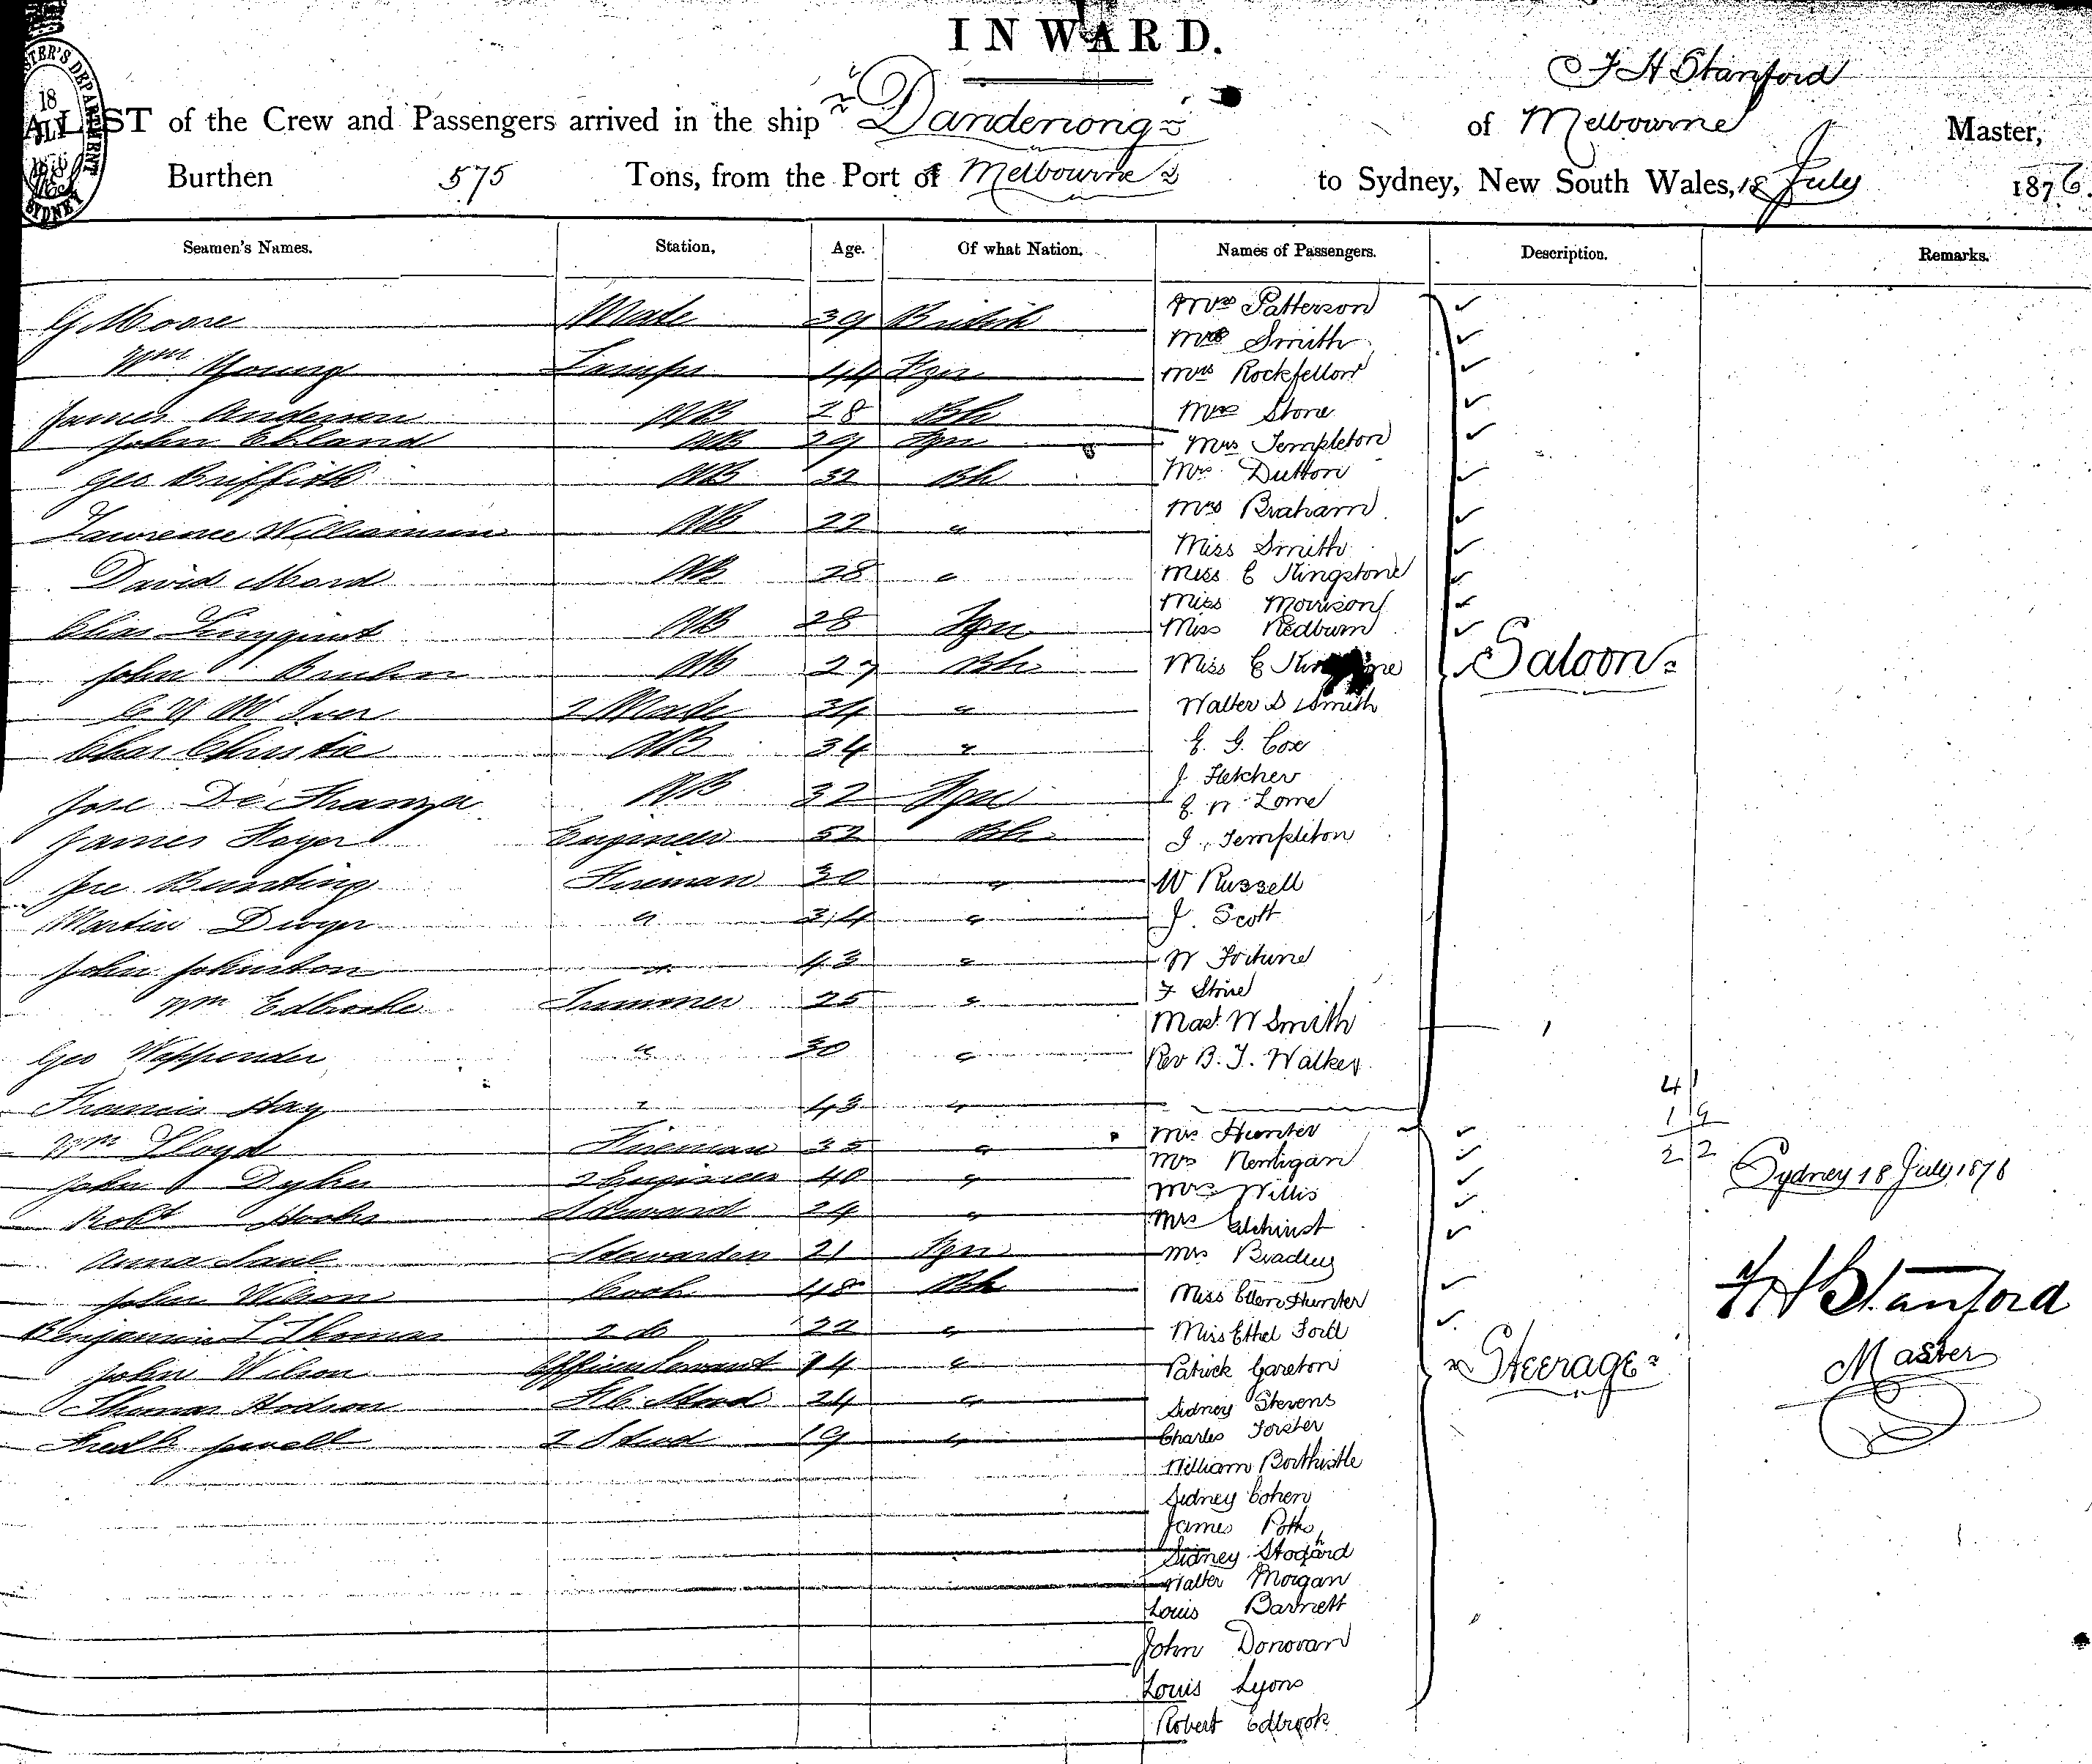 INWARD.
F H Stanford
A LIST of the Crew and Passengers arrived in the ship Dandenong of Melbourne Master,
Burthen 575 Tons, from the Port of Melbourne to Sydney, New South Wales, 18 July 1876.
Seamen's Names. Station, Age. Of what Nation, Names of Passengers. Description. Remarks.
G Moore Mate 39 British Mrs Patterson
Mrs Smith
Wm Young Lamps 44 Fgn Mrs Rockfellow
James Anderson AB 28 Bh Mrs Stone
John Ekland AB 29 Fgn Mrs Templeton
Geo Griffith AB 32 Bh Mrs Dutton
Mrs Braham
Lawrence Williamson AB 22 "
Miss Smith
David Moord AB 28 " Miss E Kingstone
Miss Morrison
AB 28 Fgn Miss Redburn
John AB 27 Bh Miss E Saloon
2 Mate 34 " Walter S Smith
Chas Christie AB 34 " E. G. Cox
J. Fletcher
Jose De AB 32 Fgn Lorne
James Engineer 52 Bh J. Templeton
Jre Bunting Fireman 30 " W Russell
Martin Dwyer " 34 " J. Scott
John Johnston " 43 " W Fortune
Wm Edbrooke Trimmer 25 " F Stone
Mast. W Smith
Geo " 30 " Rev B. J. Walker
Francis Hay " 43 "
4 1
1 9
2 2
Wm Lloyd Fireman 35 " Mrs Hunter
John Dyker 2 Engineer 40 " Mrs
Mrs Willis
Sydney 18 July 1876
Robt Hooke Steward 24 " Mrs
Anna Saul Stewardess 21 Fgn Mrs Bradley
John Wilson Cook 48 Bh Miss Ellen Hunter
F H Stanford
Benjamin L Thomas 2 do 22 " Miss Ethel Ford
John Wilson Officers Servant 14 " Patrick Gareton Steerage
Master
Thomas Hodson Stwd 24 " Sidney Stevens
Fredk Jewell 2 Stwd 19 " Charles Forster
William Borthistle
Sidney Cohen
James Potts
Sidney Stogard
Walter Morgan
Louis Barnett
John Donovan
Louis Lyons
Robert Edbrook